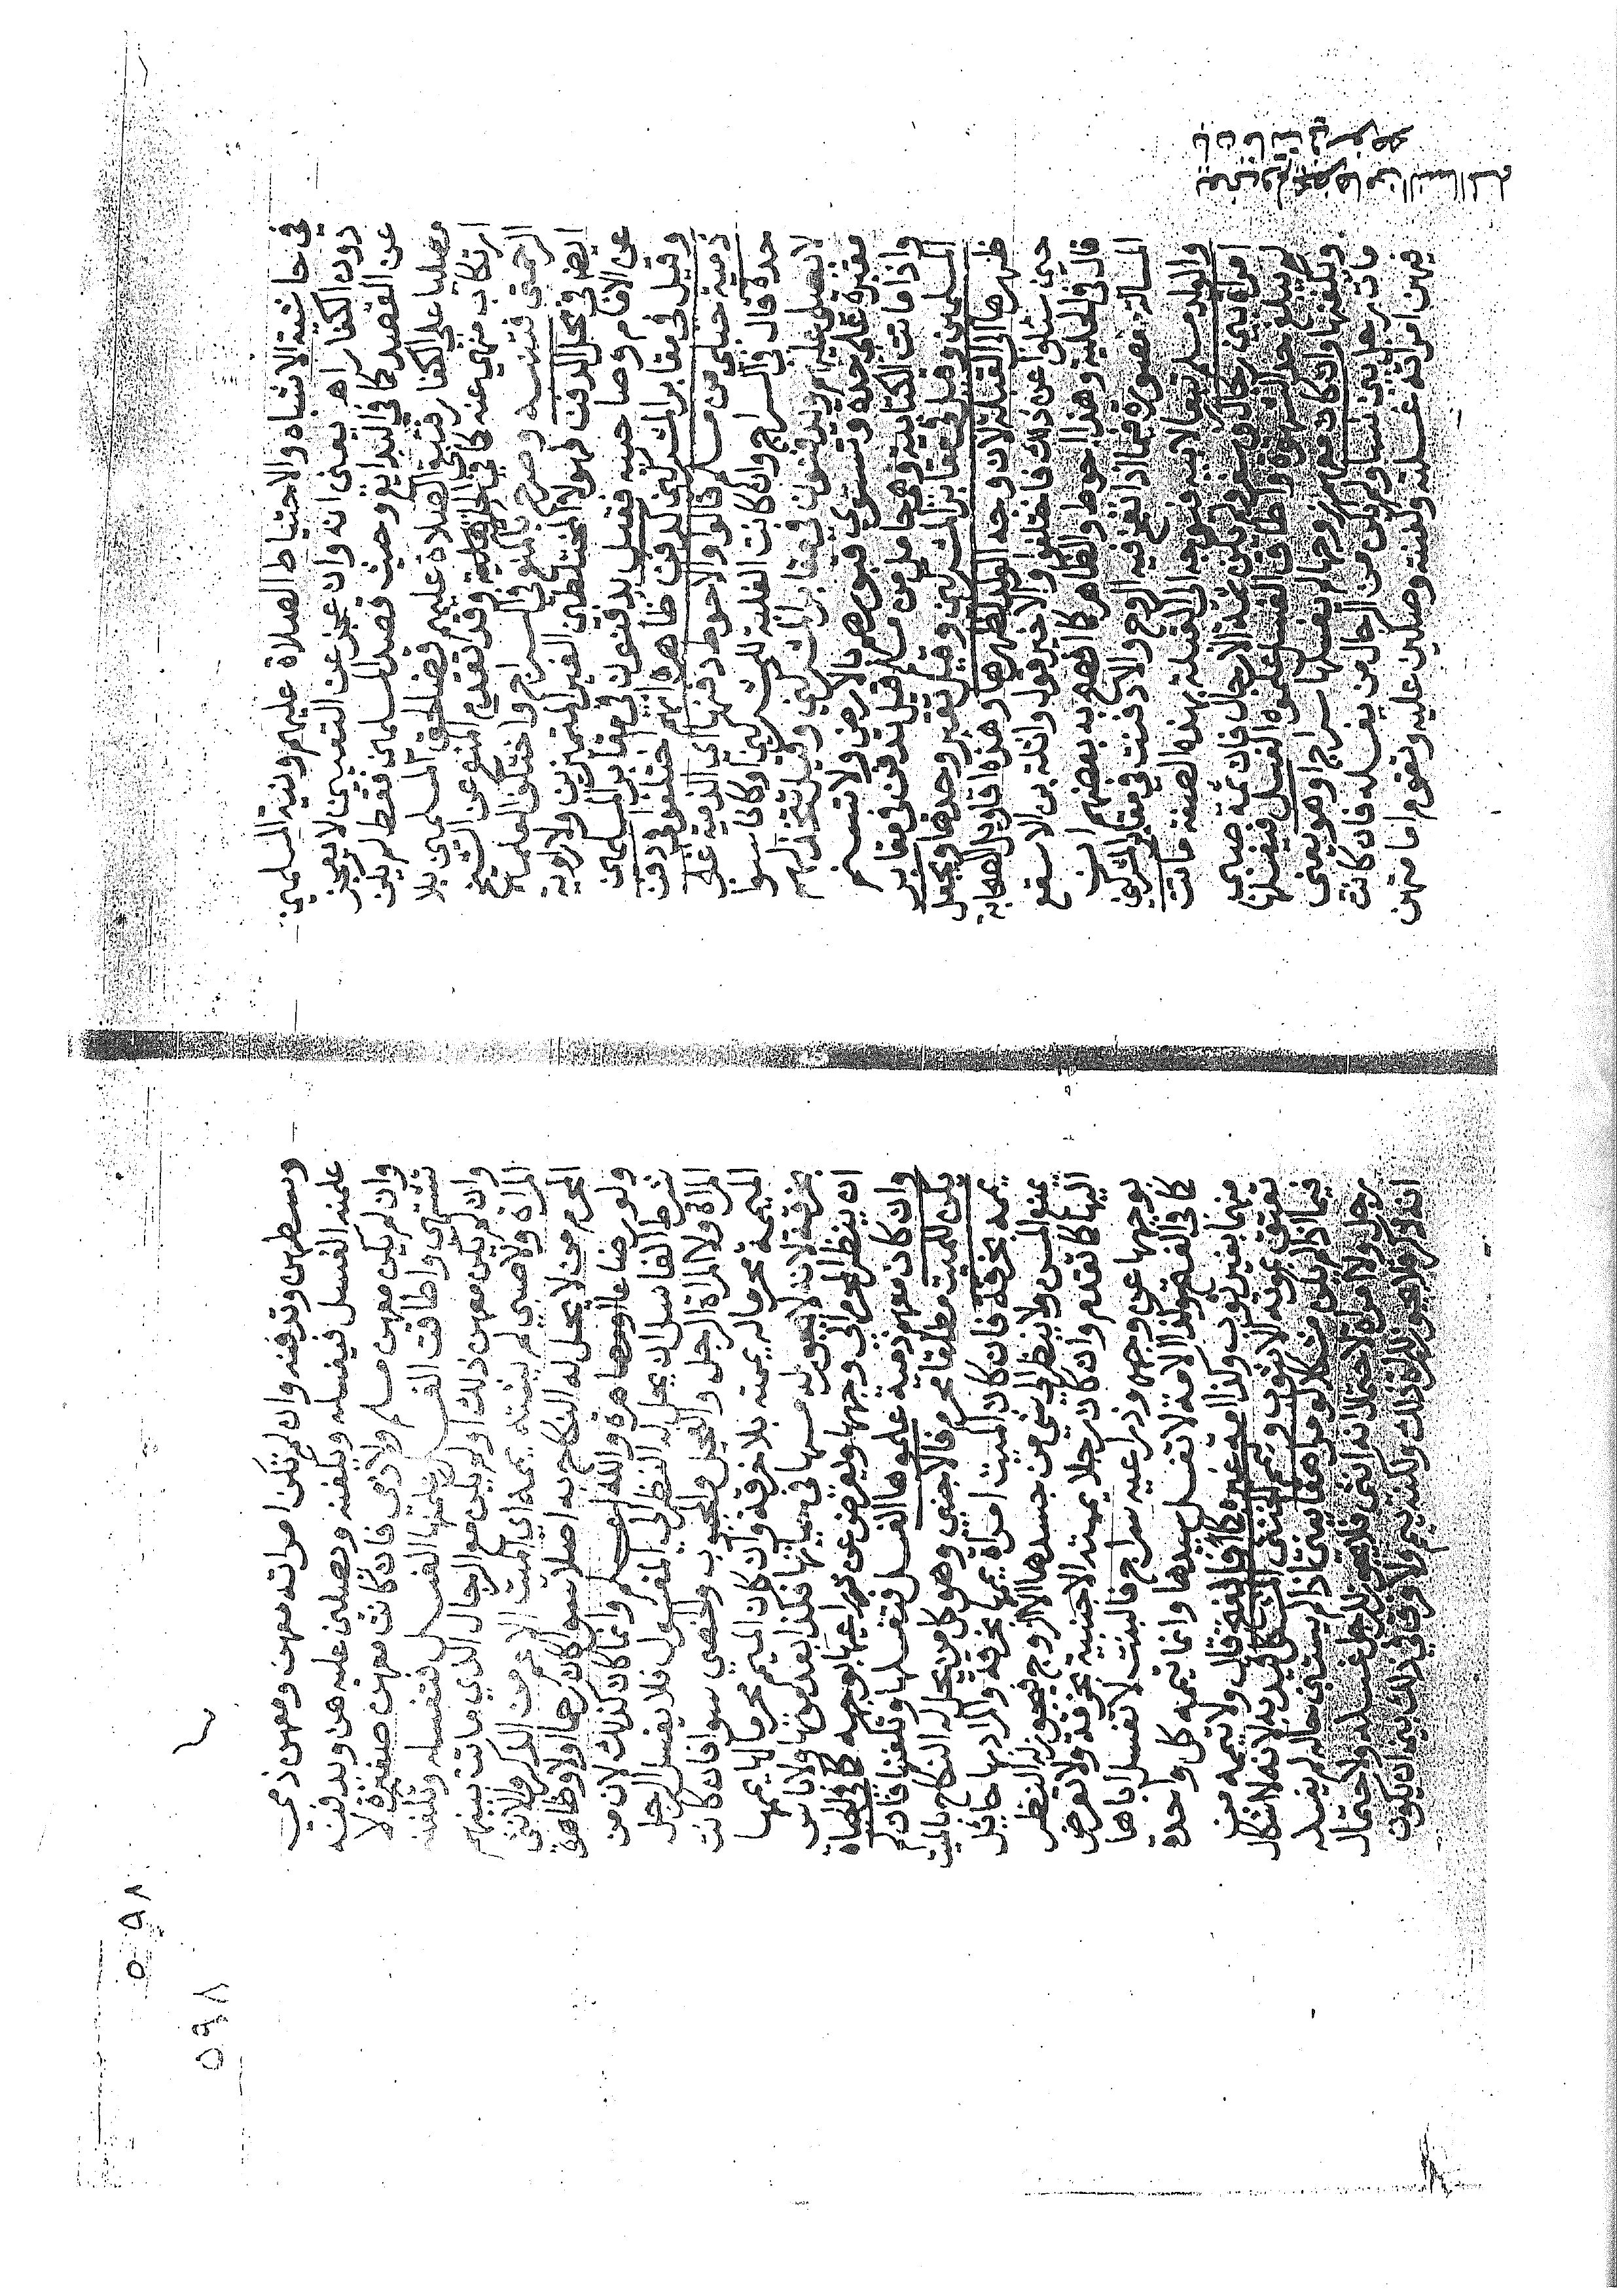 في حاشية الاشباه والاحتياط الصلاة عليهم ونية المسلمين
دون الكفار اهـ يعني انه وان عجز عن التعيين لا يعجز
عن القصد كما في البدايع وحيث قصد المسلمين فقط لم يكن
مصليا علي الكفار فتنبه الصلاة عليهم قضا لحق المسلمين بلا
ارتكاب منهي عنه كما في الحلية وقد تقدم المنع عن الشيخ
الرحمتي فتنبه وصرح بالمنع في السراج واختلف العلماء
ايضا في محل الدفن لهولا المختلطين الغير المتميزين ولا رواية
عن الامام وصاحبيه فقيل يدفنون في مقابر المسلمين
وقيل في مقابر المشركين كدفن ظاهره انهم اختلفوا في دفن
ذمية حبلي من مسلم قالوا والاحوط دفنها اي الذمية علي
حدة قال في السراج وان كانت الغلبة للمشركين او كانا سوا
لا يصلي عليهم ويدفنون في مقابر المشركين وقيل تتخذ لهم
مقبرة علي حدة وتسوي قبورهم بالارض ولا تسنم
واذا ماتت الكتابية وهي حامل من مسلم قيل تدفن في مقابر
المسلمين وقيل في مقابر المشركين وقيل تقبر وحدها ويجعل
ظهرها الي القبلة لان وجه الولد لظهرها وهذه اقاويل الصحابة
حين سئلوا عن ذلك فاختلفوا والاخير قول واثلة بن الاسقع
قال في الحلية وهذا احوط والظاهر كما افصح به بعضهم ان
المسالة مصورة فيما اذا نفخ فيه الروح والا دفنت في مقابر المشركين
والولد مسلم تبعا لابيه فيتوجه الي القبلة بهذه الصفة ماتت
امراة بين رجال او سفر ولم يكن ثمة الا رجال فان ثمة صبي
لم يبلغ حد الشهوة واطاق الغسل علموه الغسل فيغسلها
ويكفنها وان كان معهم زوجها لم يغسلها سراج وهو يعني
مات رجل بين نسا ولم يكن من الرجال من يغسله فان كانت
فيهن امراته غسلته وكفنته وصلين عليه وتقوم امامتهن
وسطهن وتدفنه وان لم تكن امراته معهن ومعهن ذمي
علمنه الغسل فيغسله ويكفنه ويصلين عليه هن ويدفنه
وان لم يكن معهن مسلم ولا ذمي فان كانت معهن صغيرة لا
تشتهي واطاقت الغسل علمنها الغسل فتغسله وتكفنه
وان لم يكن معهن ذلك او لم يكن مع الرجال الذي ماتت بينهم
المراة ولا صبي لم يشته يممه اي الميت الاعم من الذكر والانثي
المحرم من لا يحل له النكاح به اصلا سوا كان رحما او لا وظاهره
ولو رضاعا او مصاهرة والله اعلم وانما كان كذلك لان من
شرط الغاسل ان يحل له النظر الي المغسول فلا يغسل الرجل
المراة ولا المراة الرجل والفحل والمجبوب والخصي سوا فان كانت
الميممة محرما له يممته بلا خرقة وان كان الميمم محرما لها يممها
بخرقة لانه لا يجوز له مسها في حياتها فكذا بعد موتها ولا باس
ان ينظر المحرم الي وجهها ويعرض عن ذراعيها بوجهه كما في الحياة
وان كان معهم ذمية علموها الغسل فتغسلها وتكفنها فان لم
يكن للميت مطلقا محرم فالاجنبي وهو كل من يحل له النكاح بالميت
يممه بخرقة فان كان الميت امراة يممها بخرقة والمراد بها حايل
يمنع المس ولا ينظر الي شي من جسدها الا الزوج فيجوز له النظر
اليها كما تقدم وان كان رجلا يممته الاجنبية بخرقة ولا يعرض
بوجهها عن وجهه وذراعيه سراج فالبنت لا تغسل اباها
كما في الفتح وكذا الامة لا تغسل سيدها وانما تيممه كل واحدة
منهما بغير ثوب وكذا مدبرته كما في الفتح قال ولا تيممه من
تعتق بموته الا بثوب وييمم الخنثي المشكل قيد به لانه لا اشكال
فيما اذا لم يكن مشكلا لو مراهقا يعني اذا لم يستبن حاله لم يغسله
رجل ولا امراة لاحتمال انه انثي فلا يجوز للرجل غسله ولاحتمال
انه ذكر فلا يجوز للمراة ذلك ولكنه ييمم ولا فرق في ذلك بين ان يكون
٥٩٨